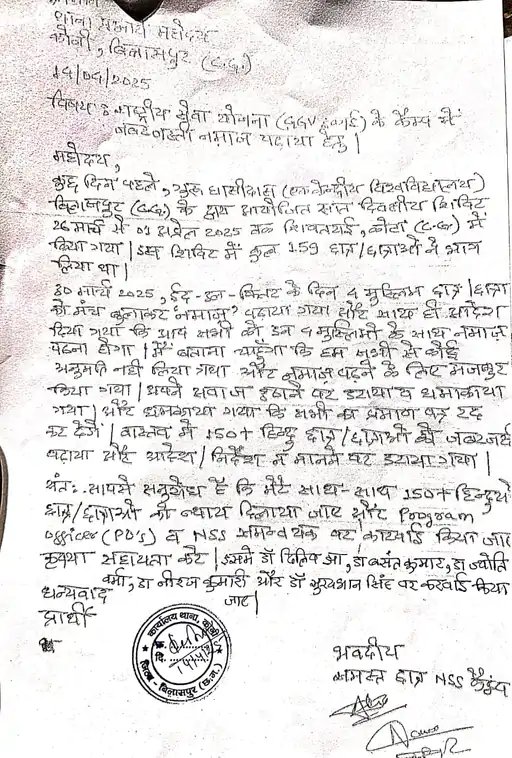 थाना प्रभारी महोदय
कोनी, बिलासपुर (C.G.)
14/04/2025
विषय : राष्ट्रीय सेवा योजना (GGV इकाई) के कैम्प में
जबरजस्ती नमाज पढ़ाया हेतु।
महोदय,
कुछ दिन पहले, गुरू घासीदास (एक केन्द्रीय विश्वविद्यालय)
बिलासपुर (C.G.) के द्वारा आयोजित सात दिवसीय शिविर
26 मार्च से 01 अप्रैल 2025 तक शिवतराई, कोटा (C.G.) में
किया गया। इस शिविर में कुल 159 छात्र/छात्राओं ने भाग
लिया था।
30 मार्च 2025, ईद-उल-फितर के दिन 4 मुस्लिम छात्र/छात्रा
को मंच बुलाकर 'नमाज' पढ़ाया गया और साथ ही आदेश
दिया गया कि आप सभी को इन 4 मुस्लिमों के साथ नमाज
पढ़ना होगा। मैं बताना चाहूँगा कि हम सभी से कोई
अनुमति नहीं लिया गया और नमाज पढ़ने के लिए मजबूर
किया गया। अपने आवाज उठाने पर डराया व धमकाया
गया। और धमकाया गया कि सभी का प्रमाण पत्र रद्द
कर देंगे। वास्तव में 150+ हिन्दु छात्र/छात्राओं को जबरजस्ती
पढ़ाया और आदेश/निर्देश न मानने पर डराया गया।
अंत:- आपसे अनुरोध है कि मेरे साथ-साथ 150+ हिन्दुओं
छात्र/छात्राओं को न्याय दिलाया जाए और Program
Officer (PO's) व NSS समन्वयक पर कार्यवाई किया जाए
कृपया सहायता करें। इसमें डॉ दिलीप झा, डॉ बसंत कुमार, डॉ ज्योति
वर्मा, डॉ नीरज कुमारी और डॉ सूर्यभान सिंह पर करवाई किया
जाए।
धन्यवाद
प्रार्थी
कार्यालय थाना, कोनी
जिला - बिलासपुर (छ.ग.)
भवदीय
समस्त छात्र NSS कैडेट्स